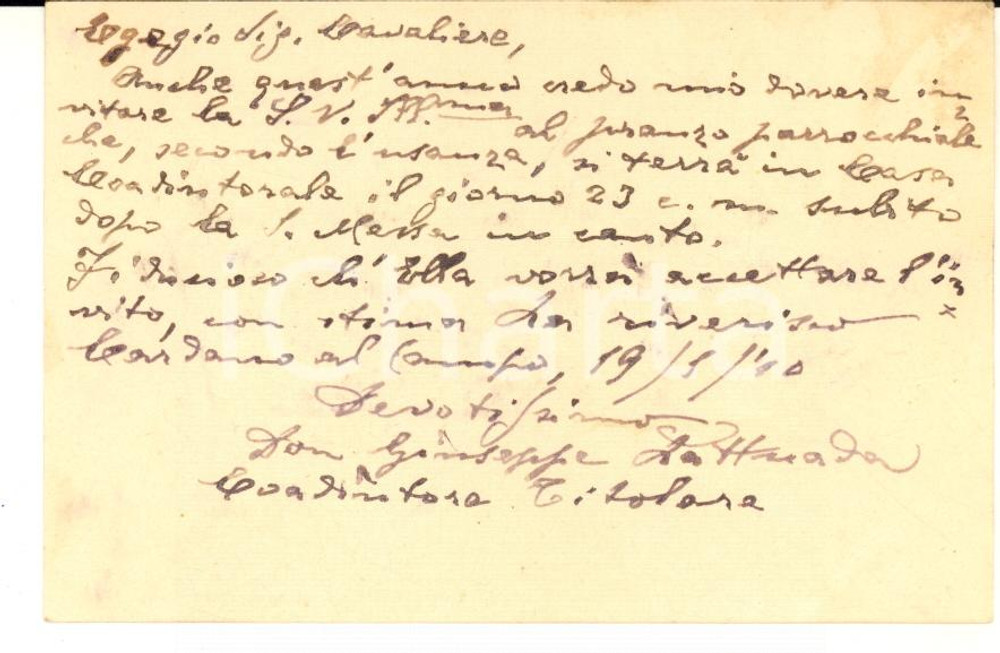 Egregio Sig. Cavaliere,
Anche quest'anno credo mio dovere in
vitare la S. V. Ill.ma al pranzo parrocchiale
che, secondo l'usanza, si terrà in Casa
Coadiutorale il giorno 23 c. m. subito
dopo la S. Messa in canto.
Fiducioso ch'Ella vorrà accettare l'in
vito, con stima La riverisco
Cardano al Campo, 19/1/
Devotissimo
Don Giuseppe Lattuada
Coadiutore Titolare
iCharta